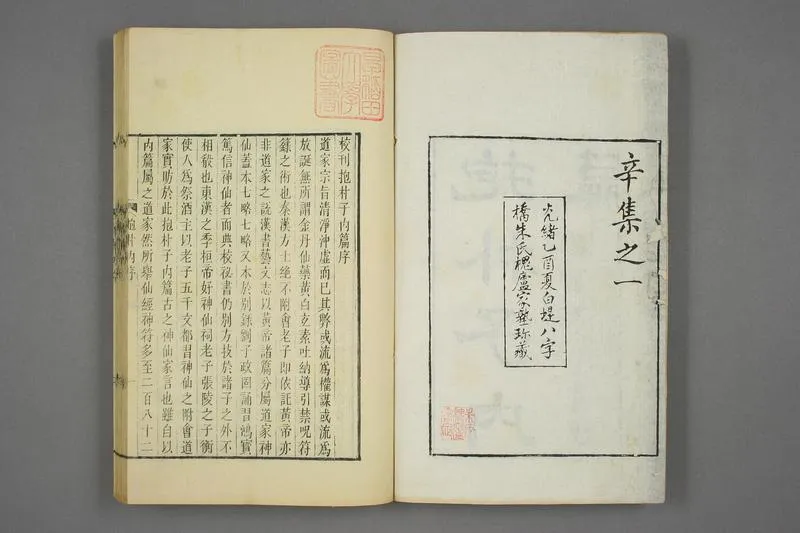 辛集之一
光緒乙酉夏白堤八字
橋朱氏槐廬家塾珍藏
校刊抱朴子內篇序
道家宗旨清淨沖虛而已其弊或流爲權謀或流爲
放誕無所謂金丹仙藥黃白玄素吐納導引禁呪符
籙之術也秦漢方士絶不附會老子卽依託黃帝亦
非道家之說漢書藝文志以黃帝諸篇分屬道家神
仙蓋本七略七略又本於別錄劉子政固誦習鴻寶
篤信神仙者而典校祕書仍別方技於諸子之外不
相殽也東漢之季桓帝好神仙祠老子張陵之子衡
使人爲祭酒主以老子五千文都習神仙之附會道
家實昉於此抱朴子內篇古之神仙家言也雖自以
內篇屬之道家然所舉仙經神符多至二百八十二
抱朴內序